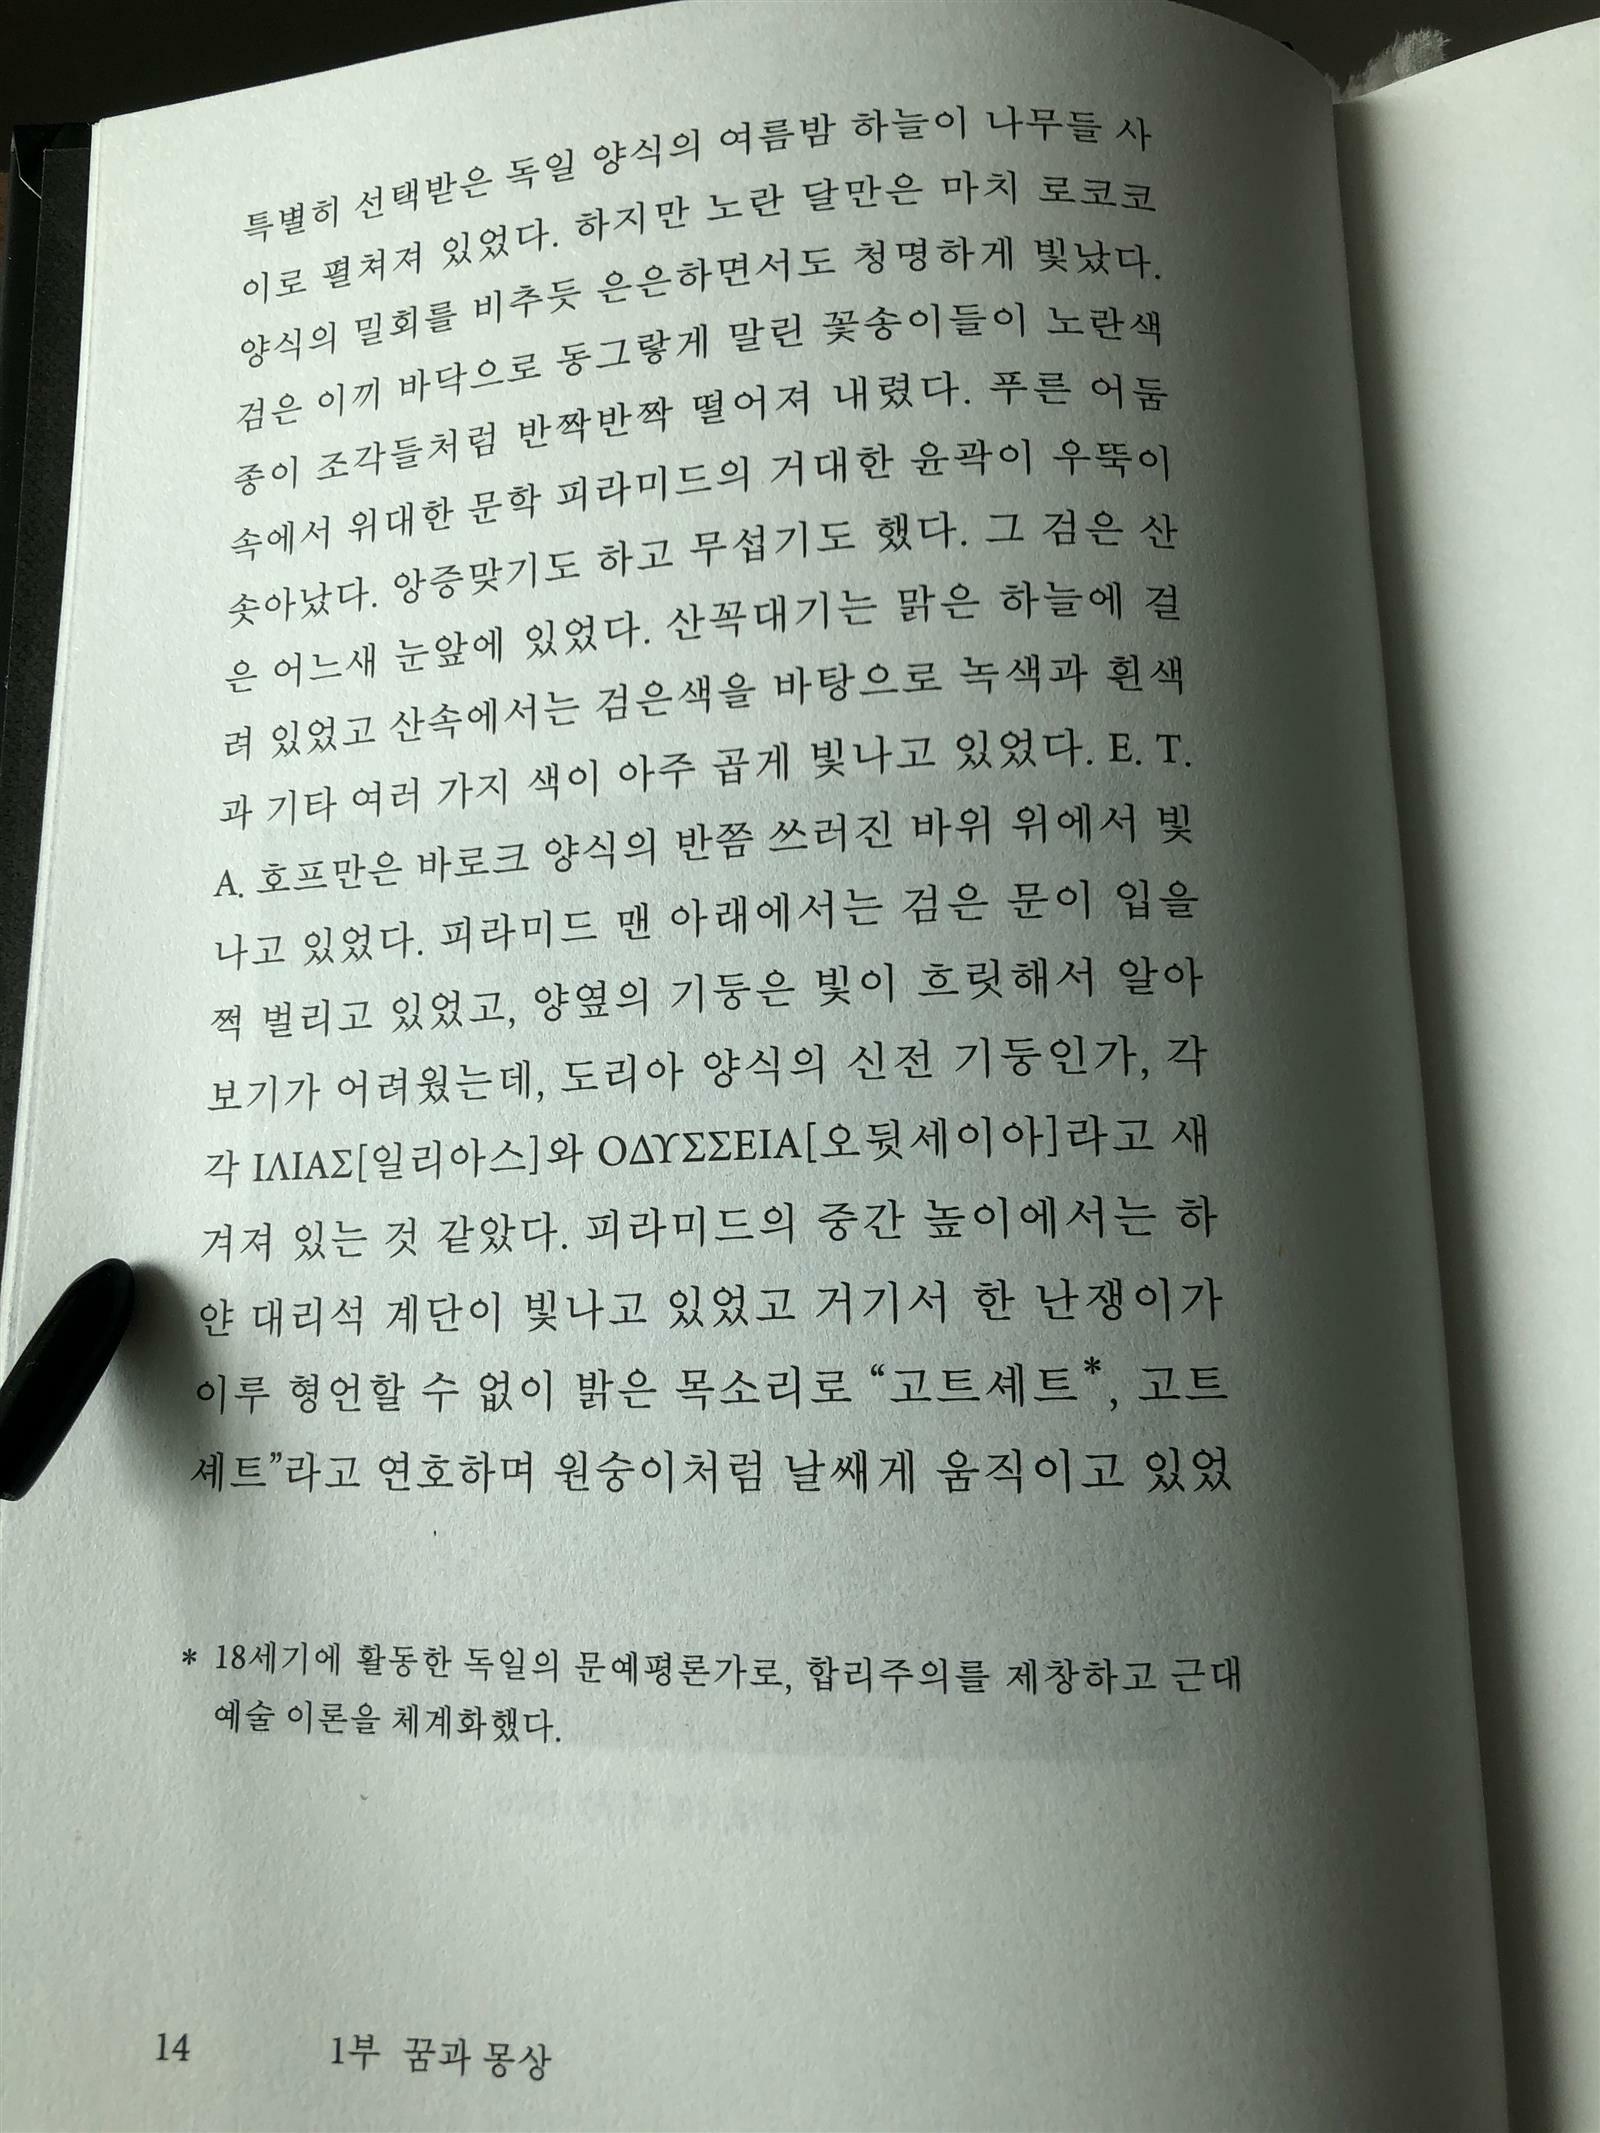 특별히 선택받은 독일 양식의 여름밤 하늘이 나무들 사
이로 펼쳐져 있었다. 하지만 노란 달만은 마치 로코코
양식의 밀회를 비추듯 은은하면서도 청명하게 빛났다.
검은 이끼 바닥으로 동그랗게 말린 꽃송이들이 노란색
종이 조각들처럼 반짝반짝 떨어져 내렸다. 푸른 어둠
속에서 위대한 문학 피라미드의 거대한 윤곽이 우뚝이
솟아났다. 앙증맞기도 하고 무섭기도 했다. 그 검은 산
은 어느새 눈앞에 있었다. 산꼭대기는 맑은 하늘에 걸
려 있었고 산속에서는 검은색을 바탕으로 녹색과 흰색
과 기타 여러 가지 색이 아주 곱게 빛나고 있었다. E. T.
A. 호프만은 바로크 양식의 반쯤 쓰러진 바위 위에서 빛
나고 있었다. 피라미드 맨 아래에서는 검은 문이 입을
쩍 벌리고 있었고, 양옆의 기둥은 빛이 흐릿해서 알아
보기가 어려웠는데, 도리아 양식의 신전 기둥인가, 각
각 ΙΛΙΑΣ[일리아스]와 ΟΔΥΣΣΕΙΑ[오뒷세이아]라고 새
겨져 있는 것 같았다. 피라미드의 중간 높이에서는 하
얀 대리석 계단이 빛나고 있었고 거기서 한 난쟁이가
이루 형언할 수 없이 밝은 목소리로 “고트셰트*, 고트
셰트”라고 연호하며 원숭이처럼 날쌔게 움직이고 있었
* 18세기에 활동한 독일의 문예평론가로, 합리주의를 제창하고 근대
예술 이론을 체계화했다.
14 1부 꿈과 몽상